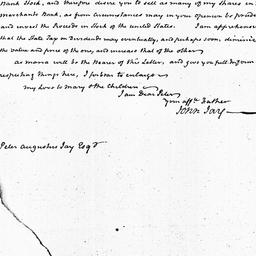 Bank Stock, and therefore desire you to sell as many of my shares in
merchants Bank, as from circumstances may in your opinion be
and invest the Proceeds in Stock of the united States. I am apprehensive
that the State Tax on Dividends may eventually, and perhaps soon, diminish
the value and price of the one, and increase that of the other
as maria will be the Bearer of this Letter, and give you full Inform
respecting things here, I forbear to enlarge
my Love to Mary & the Children
I am Dear Peter
your affte. Father
John Jay
Peter Augustus Jay Esqr